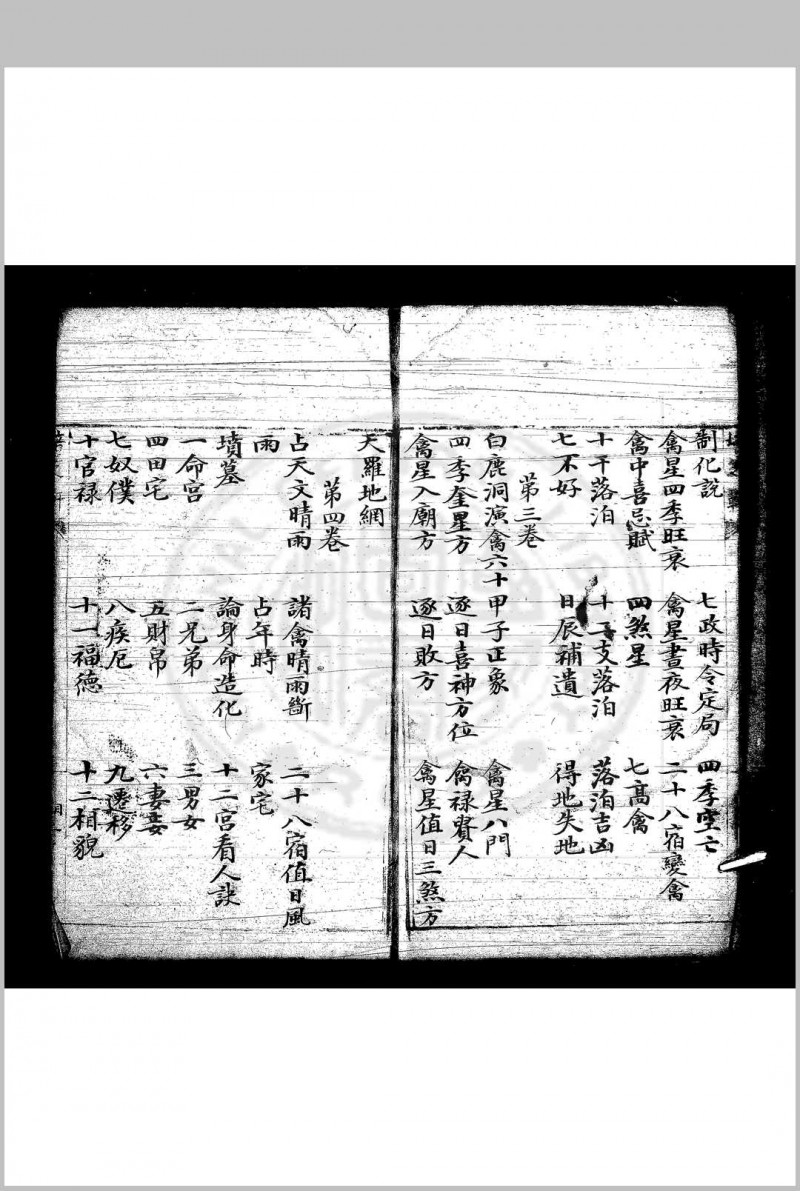 制化説　七政時令定局　四季空亡
禽星四季旺衰　禽星晝夜旺衰　二十八宿變禽
禽中喜忌賦　四煞星　七高禽
十干落泊　十二支落泊　落泊吉凶
七不好　日辰補遺　得地失地
第三卷
白鹿洞演禽六十甲子正象　禽星八門
四季奎星方　逐日喜神方位　禽禄貴人
禽星入廟方　逐日敗方　禽星值日三煞方
天羅地網
第四卷
占天文晴雨　諸禽晴雨斷　二十八宿值日風
雨　占年時　家宅
墳墓　論身命造化　十二宮看人訣
一命宮　二兄弟　三男女
四田宅　五財帛　六妻妾
七奴僕　八疾厄　九遷移
十官禄　十一福德　十二相貌